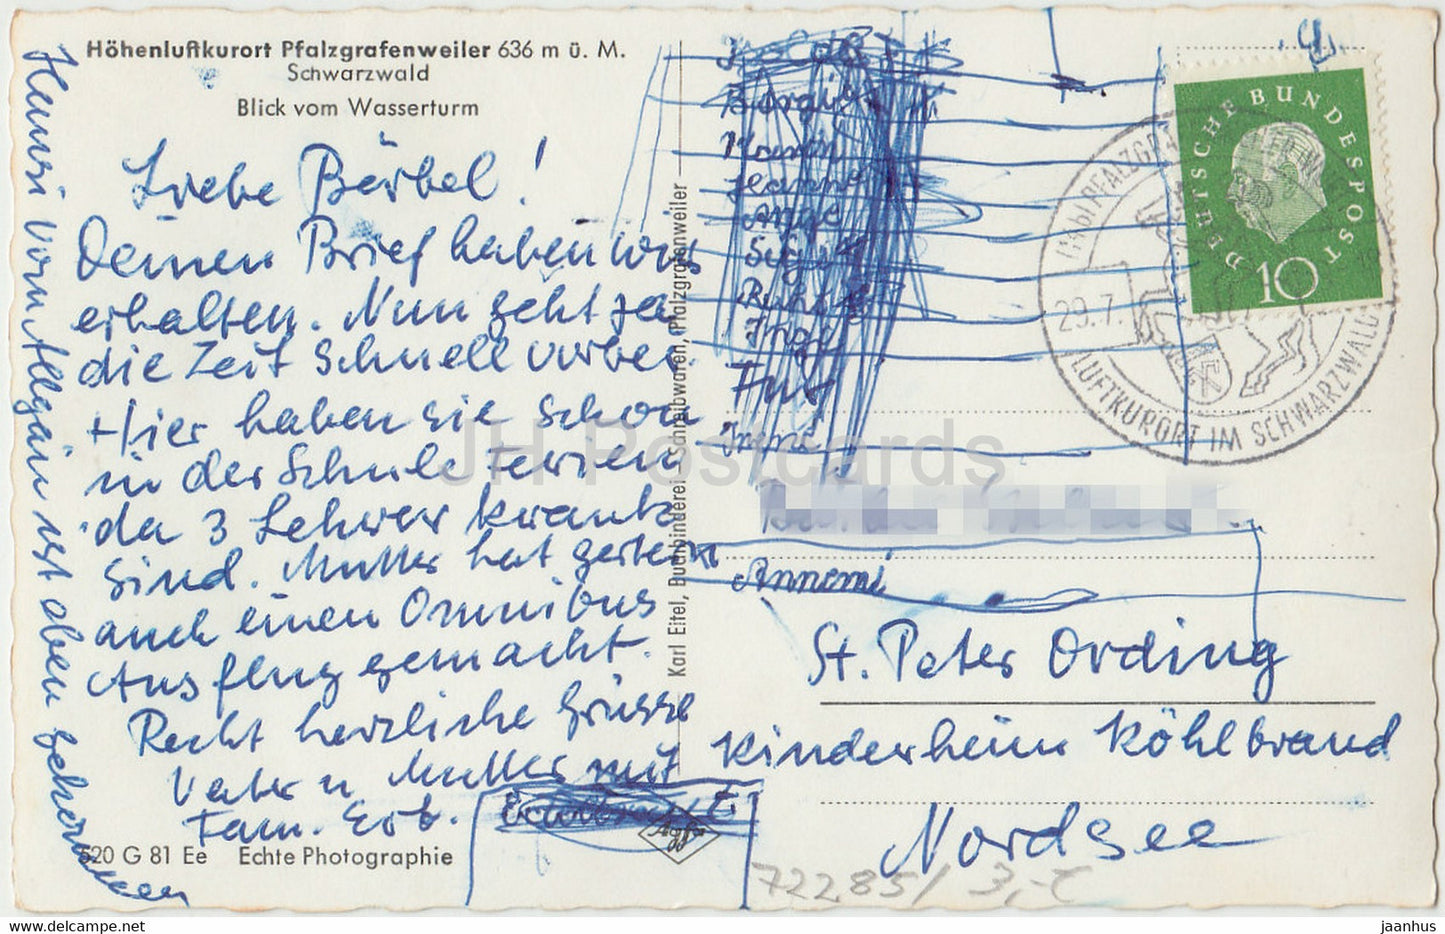 Höhenluftkurort Pfalzgrafenweiler 636 m ü. M.
Schwarzwald
Blick vom Wasserturm
Liebe Bärbel!
Deinen Brief haben wir
erhalten. Nun geht ja
die Zeit schnell vorbei.
Hier haben sie schon
in der Schule Ferien
da 3 Lehrer krank
sind. Mutter hat gestern
auch einen Omnibus
Ausflug gemacht.
Recht herzliche Grüsse
Vater u Mutter mit
Fam. Erb.
Heinri vom Allgäu ist oben gekommen
520 G 81 Ee Echte Photographie
Karl Eitel, Buchbinderei - Schreibwaren, Pfalzgrafenweiler
Agfa
Hanne
Ange
Inge
Annemi
St. Peter Ording
Kinderheim Köhlbrand
Nordsee
DEUTSCHE BUNDESPOST
10
29.7.
LUFTKURORT IM SCHWARZWALD
JH Postcards
72285/ 3,-
jaanhus